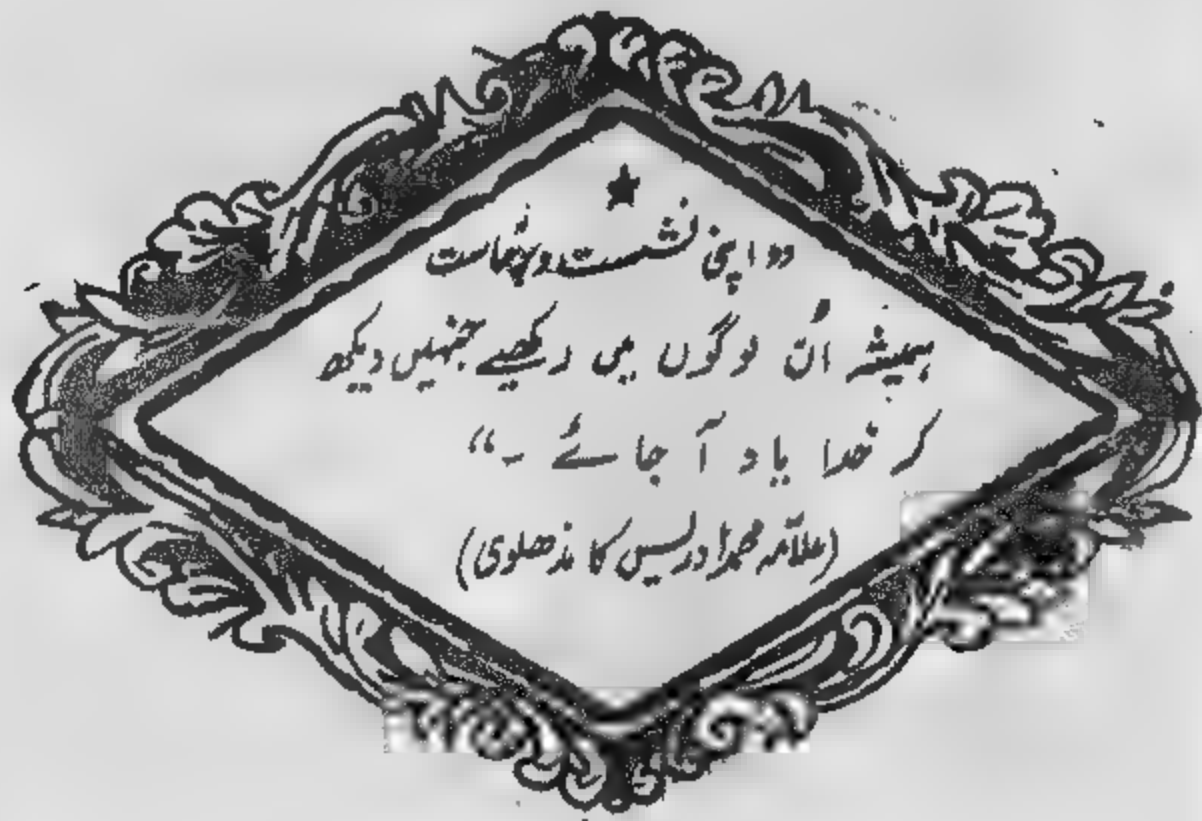 ”اپنی نشست و برخاست
ہمیشہ اُن لوگوں میں رکھیے جنہیں دیکھ
کر خدا یاد آ جائے ۔“
(علاّمہ محمد ادریس کاندھلوی)